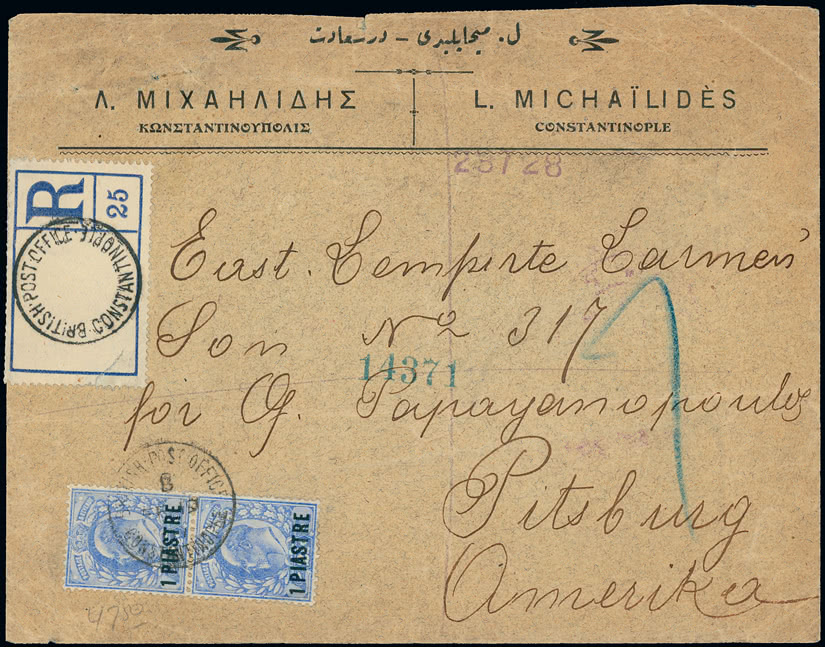 ل. ميخايليدى – درسعادت
Λ. ΜΙΧΑΗΛΙΔΗΣ
ΚΩΝΣΤΑΝΤΙΝΟΥΠΟΛΙΣ
L. MICHAÏLIDÈS
CONSTANTINOPLE
28728
R
25
BRITISH·POST·OFFICE·CONSTANTINOPLE
East. Comperte Carmen'
Son Nº 317
14371
for Of. Papayanopoulos
Pitsburg
Amerika
BRITISH·POST·OFFICE
B
1 PIASTRE
1 PIASTRE